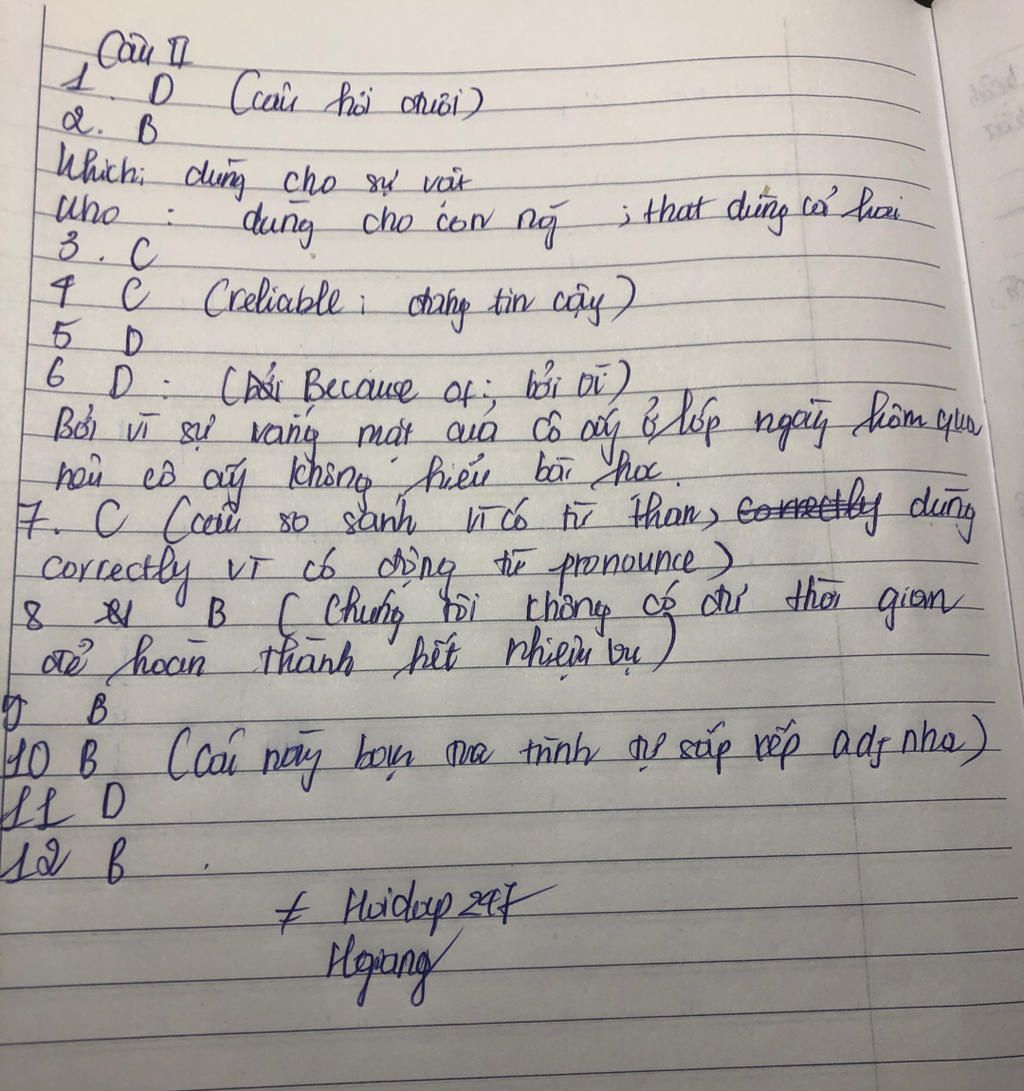 Câu II
1. D (câu hỏi đuôi)
2. B
Which: dùng cho sự vật
Who: dùng cho con ng; that dùng cả hai
3. C
4 C (reliable: đáng tin cậy)
5 D
6 D: (Because of: bởi vì)
Bởi vì sự vắng mặt của cô ấy ở lớp ngày hôm qua
nên cô ấy không hiểu bài học.
7. C (câu so sánh vì có từ than, correctly dùng
correctly vì có động từ pronounce)
8 B (Chúng tôi không có đủ thời gian
để hoàn thành hết nhiệm vụ)
9 B
10 B (Cái này bạn tra trình tự sắp xếp adj nha)
11 D
12 B
≠ Hoidap247
Hgiang